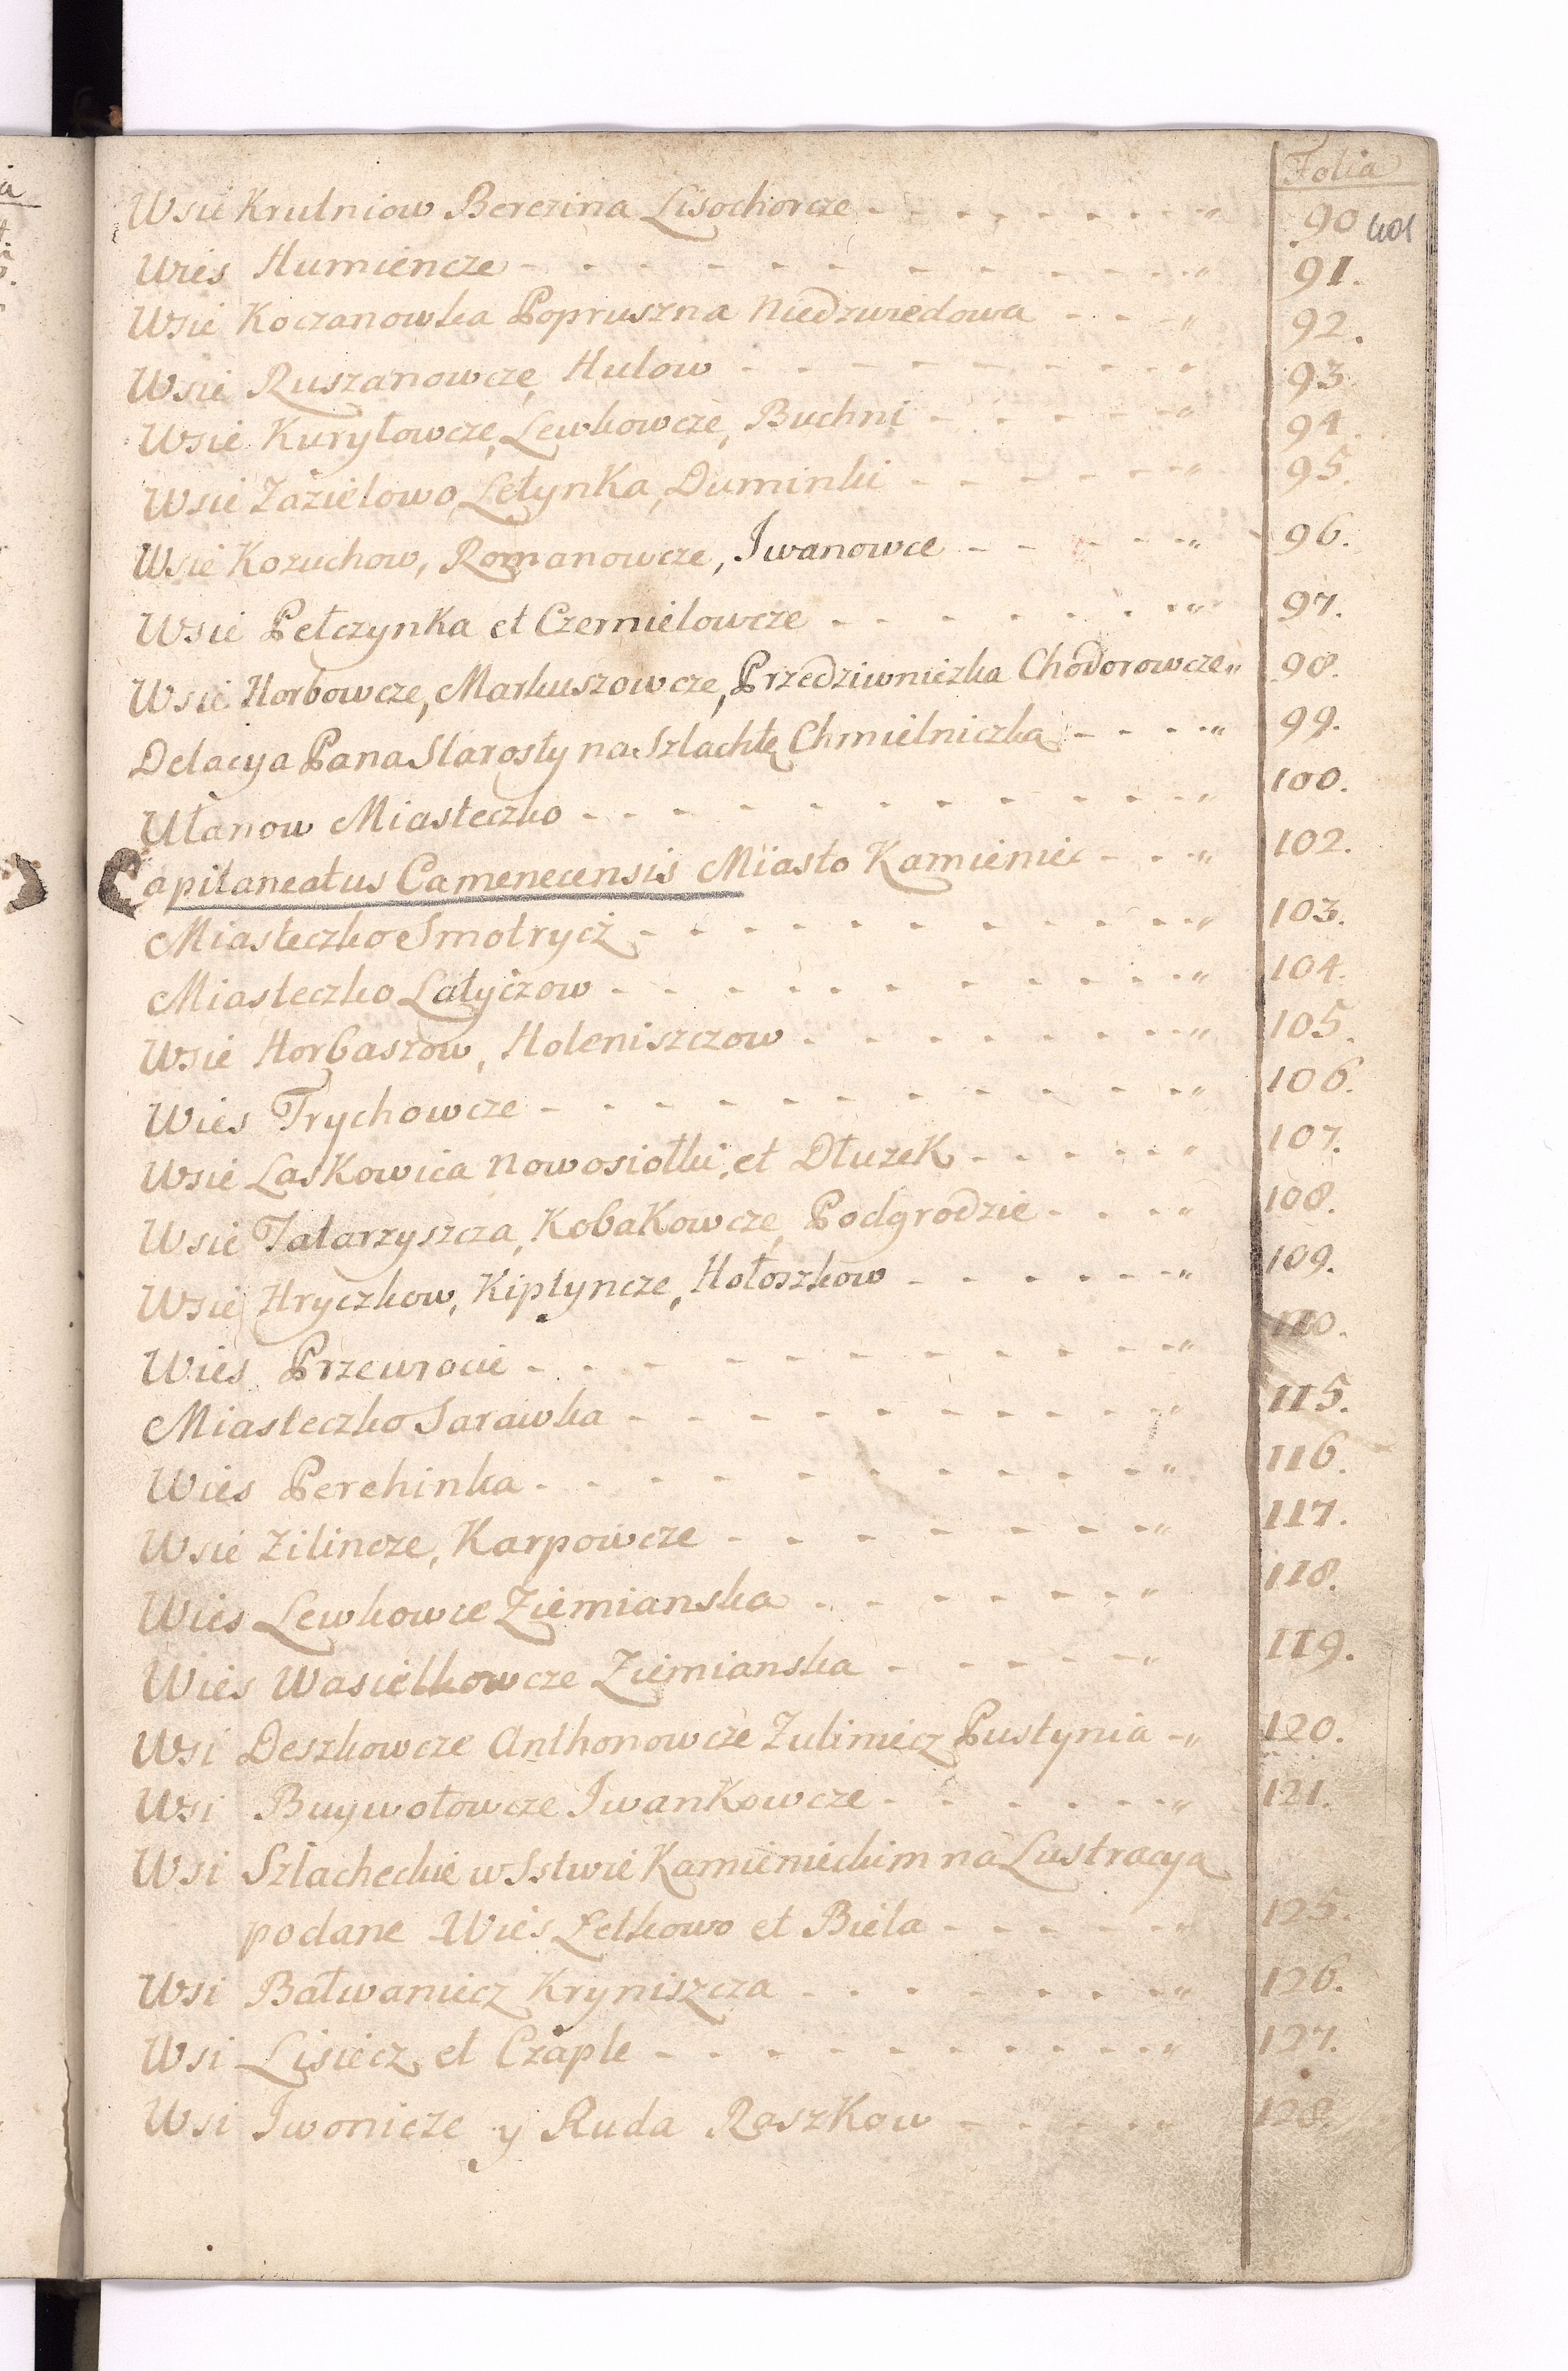 Folia
Wsie Krutniow Berezina Lisochorcze - - - - - - - - " 90 401
Wies Humiencze - - - - - - - - - - - - " 91.
Wsie Koczanowka Popruszna Niedzwiedowa - - - " 92.
Wsie Ruszanowcze, Hulow - - - - - - - - " 93
Wsie Kuryłowcze, Lewkowcze, Buchni - - - - - " 94
Wsie Zazielowo, Letynka, Duminki - - - - - - " 95.
Wsie Kozuchow, Romanowcze, Iwanowce - - - - - " 96.
Wsie Pełczynka et Czemielowcze - - - - - - - " 97.
Wsie Horbowcze, Markuszowcze, Przedziwniezka Chodorowcze " 98.
Delacya Pana Starosty na Szlachtę Chmielniczka - - - - " 99.
Ułanow Miasteczko - - - - - - - - - - - " 100.
Capitaneatus Camenecensis Miasto Kamieniec - - - " 102.
Miasteczko Smotrycż - - - - - - - - - - - " 103.
Miasteczko Latyczow - - - - - - - - - - - " 104.
Wsie Horbaszow, Holeniszczow - - - - - - - - " 105.
Wies Trychowcze - - - - - - - - - - - - " 106.
Wsie Laskowica Nowosiołki, et Dłuzek - - - - - " 107.
Wsie Tatarzyszcza, Kobakowcze, Podgrodzie - - - - " 108.
Wsie Hryczkow, Kiptyncze, Hołoszkow - - - - - - " 109.
Wies Przewrocie - - - - - - - - - - - - " 110.
Miasteczko Sarawka - - - - - - - - - - " 115.
Wies Perehinka - - - - - - - - - - - " 116.
Wsie Zilincze, Karpowcze - - - - - - - - " 117.
Wies Lewkowce Ziemianska - - - - - - - " 118.
Wies Wasielkowcze Ziemianska - - - - - " 119.
Wsi Deszkowcze Anthonowcze Zulimiecz Pustynia - " 120.
Wsi Buywołowcze Iwankowcze - - - - - - " 121.
Wsi Szlacheckie w Sstwie Kamienieckim na Lustracya
podane Wies Zelkowo et Biela - - - - - - " 125.
Wsi Bałwaniecz Kryniszcza - - - - - - - " 126.
Wsi Lisiecz et Czaple - - - - - - - - - - " 127.
Wsi Iwonicze y Ruda Raszkow - - - - - " 128.